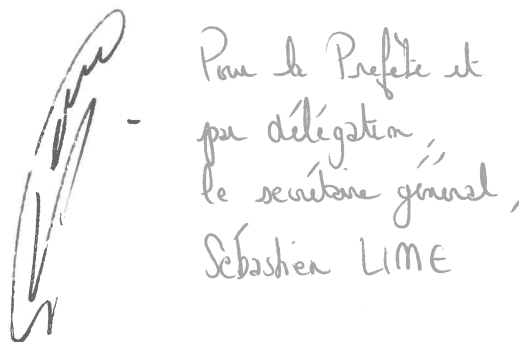 Pour la Préfète et
par délégation,
le secrétaire général,
Sébastien LIME